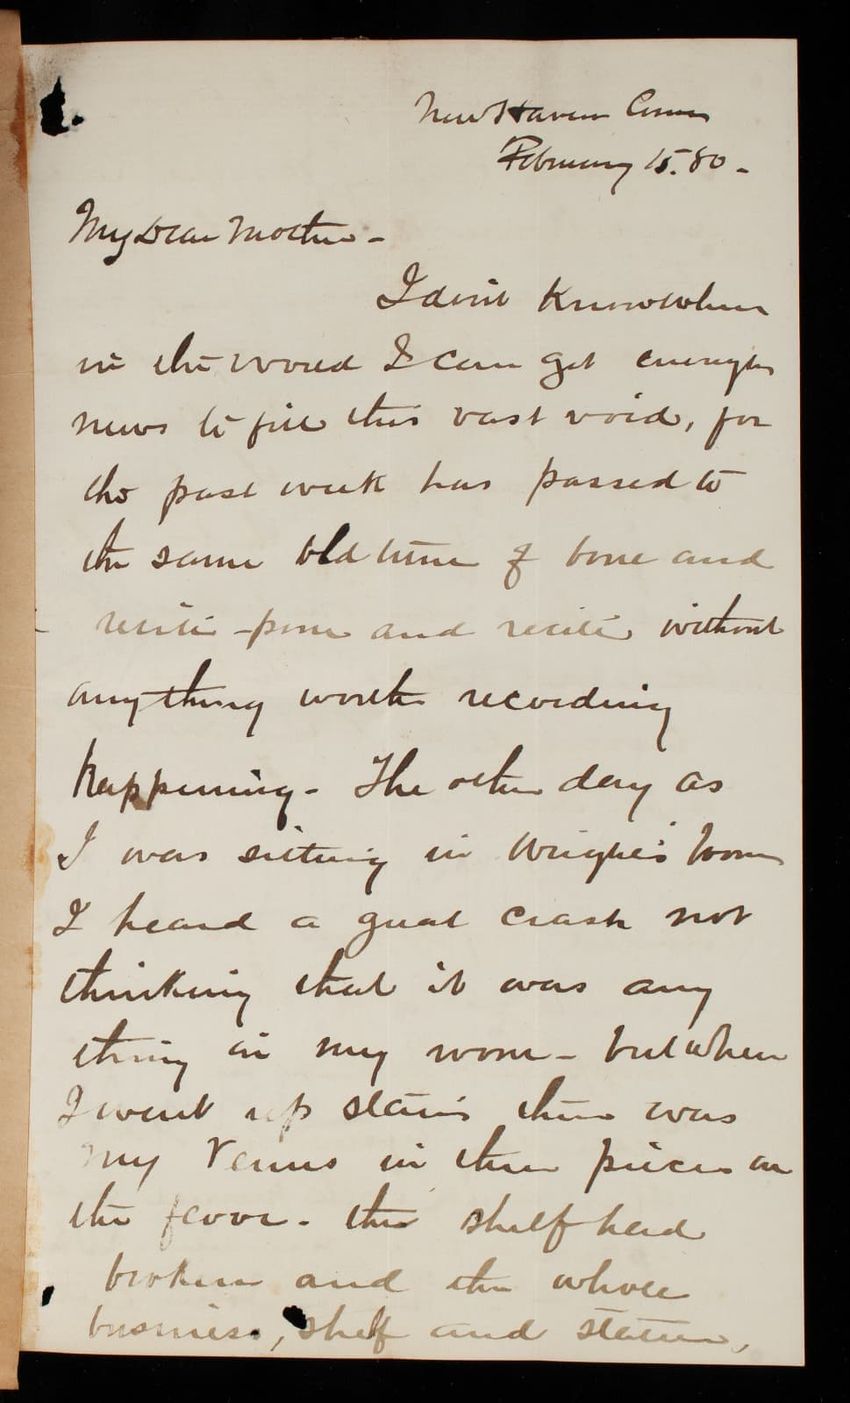 New Haven Conn
February 15. 80 -
My Dear Mother -
I don't know where
in the world I can get enough
news to fill this vast void, for
the past week has passed to
the same old tune of bone and
recite - pone and recite without
anything worth recording
happening - The other day as
I was sitting in Wright's room
I heard a great crash not
thinking that it was any
thing in my room - but when
I went up stairs there was
my Venus in three pieces on
the floor - the shelf had
broken and the whole
business, shelf and statue,